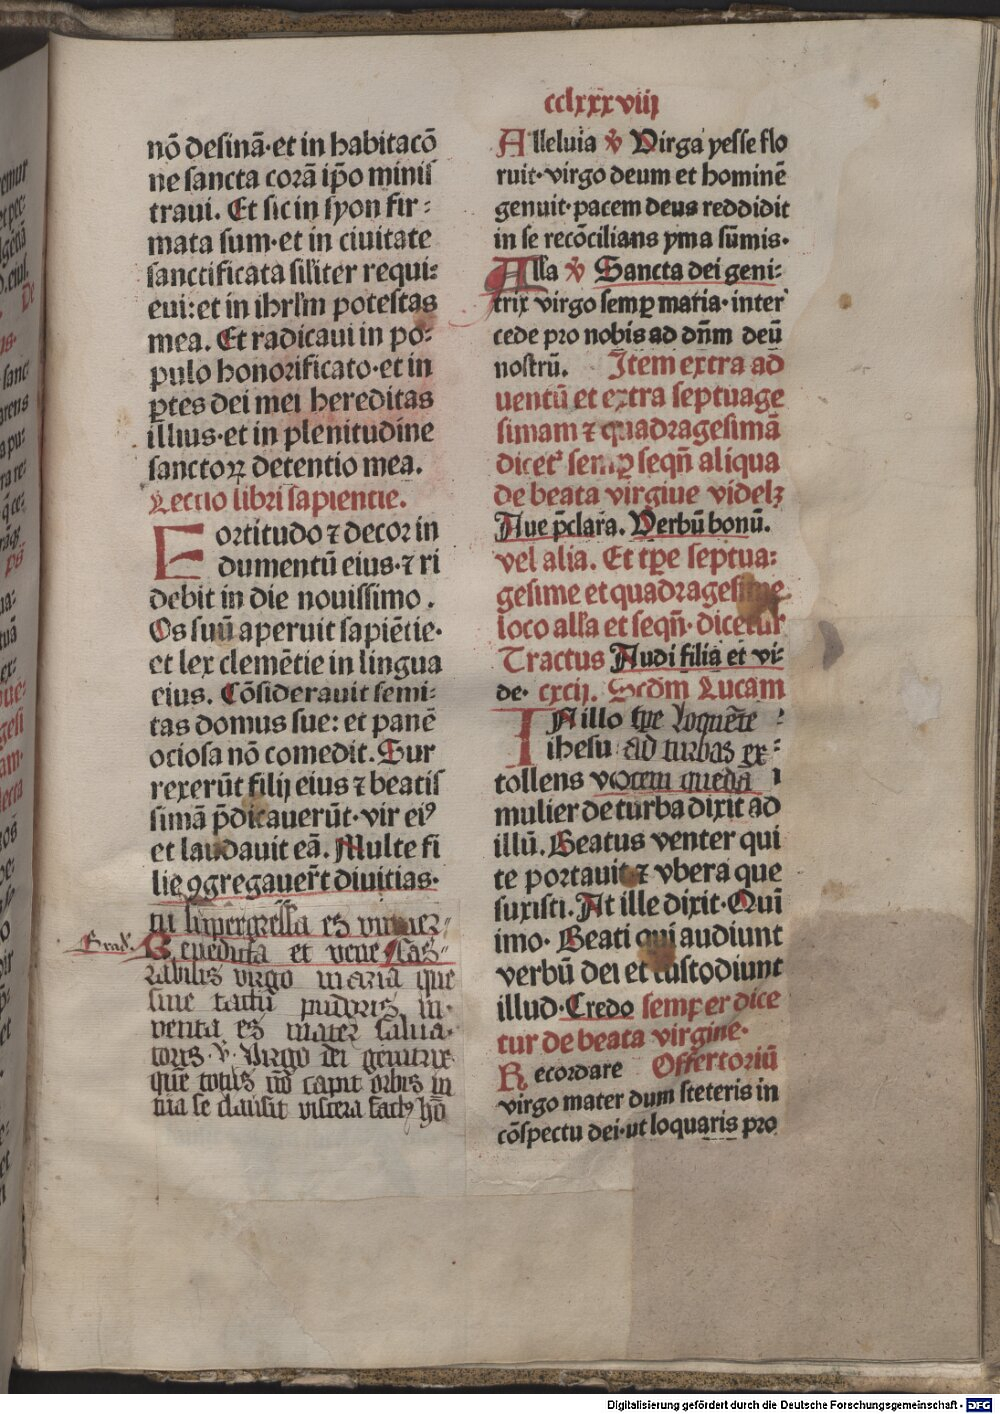 cclxxxviij
nō desinā·et in habitacō
ne sancta corā ip̄o minis
traui. Et sic in syon fir:
mata sum·et in ciuitate
sanctificata sil'iter requi:
eui: et in ihrl'm potestas
mea. Et radicaui in po:
pulo honorificato·et in
p̄tes dei mei hereditas
illius·et in plenitudine
sanctoꝝ detentio mea.
Lectio libri sapientie.
Fortitudo ⁊ decor in
dumentū eius·⁊ ri
debit in die nouissimo.
Os suū aperuit sapiētie·
et lex clemētie in lingua
eius. Cōsiderauit semi:
tas domus sue: et panē
ociosa nō comedit. Sur
rexerūt filij eius ⁊ beatis
simā p̄dicauerūt·vir eiꝰ
et laudauit eā. Multe fi
lie ꝯgregauer̄t diuitias·
tu supergressa es vniuer:
Grad. Benedicta et vene sas
rabilis virgo maria que
sine tactu pudoris in
venta es mater salua
toris · v̄ · Virgo dei genitrix
quē totus nō capit orbis in
tua se clausit viscera factꝰ hō
Alleluia v̄ Virga yesse flo
ruit·virgo deum et hominē
genuit·pacem deus reddidit
in se recōcilians yma sūmis·
Alla v̄ Sancta dei geni:
trix virgo semp̱ maria·inter
cede pro nobis ad dn̄m deū
nostrū. Item extra ad
uentū et extra septuage
simam ⁊ quadragesimā
dicet' semp̱ seqn̄ aliqua
de beata virgiue videlꝫ
Aue p̄clara. Verbū bonū.
vel alia. Et tp̄e septua:
gesime et quadragesime
loco alla et seqn̄·dicetur
Tractus Audi filia et vi:
de· cxcij. Scd̄m Lucam
IN illo tp̄e loquēte
ihesu ad turbas ex:
tollens vocem queda
mulier de turba dixit ad
illū. Beatus venter qui
te portauit ⁊ vbera que
suxisti. At ille dixit·Quī
imo· Beati qui audiunt
verbū dei et custodiunt
illud·Credo semp̱ er dice
tur de beata virgine·
Recordare Offertoriū
virgo mater dum steteris in
cōspectu dei·ut loquaris pro
Digitalisierung gefördert durch die Deutsche Forschungsgemeinschaft - DFG